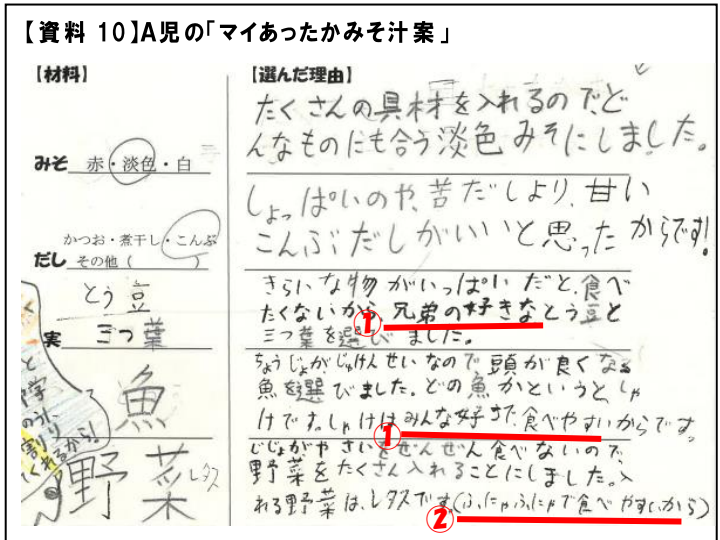 【資料 10】A児の「マイあったかみそ汁案」
【材料】
みそ 赤・淡色・白
だし かつお・煮干し・こんぶ
その他( )
実 とう豆
三つ葉
魚
野菜 レタス
【選んだ理由】
たくさんの具材を入れるので、ど
んなものにも合う淡色みそにしました。
しょっぱいのや、苦だしより、甘い
こんぶだしがいいと思ったからです!
きらいな物がいっぱいだと、食べ
たくないから、兄弟の好きなとう豆と
①
三つ葉を選びました。
ちょうじょがじゅけんせいなので頭が良くなる
魚を選びました。どの魚かというと、しゃ
けです。しゃけはみんな好きで、食べやすいからです。
①
じじょがやさいをぜんぜん食べないので、
野菜をたくさん入れることにしました。入
れる野菜は、レタスです。(ふにゃふにゃで食べやすいから)
②